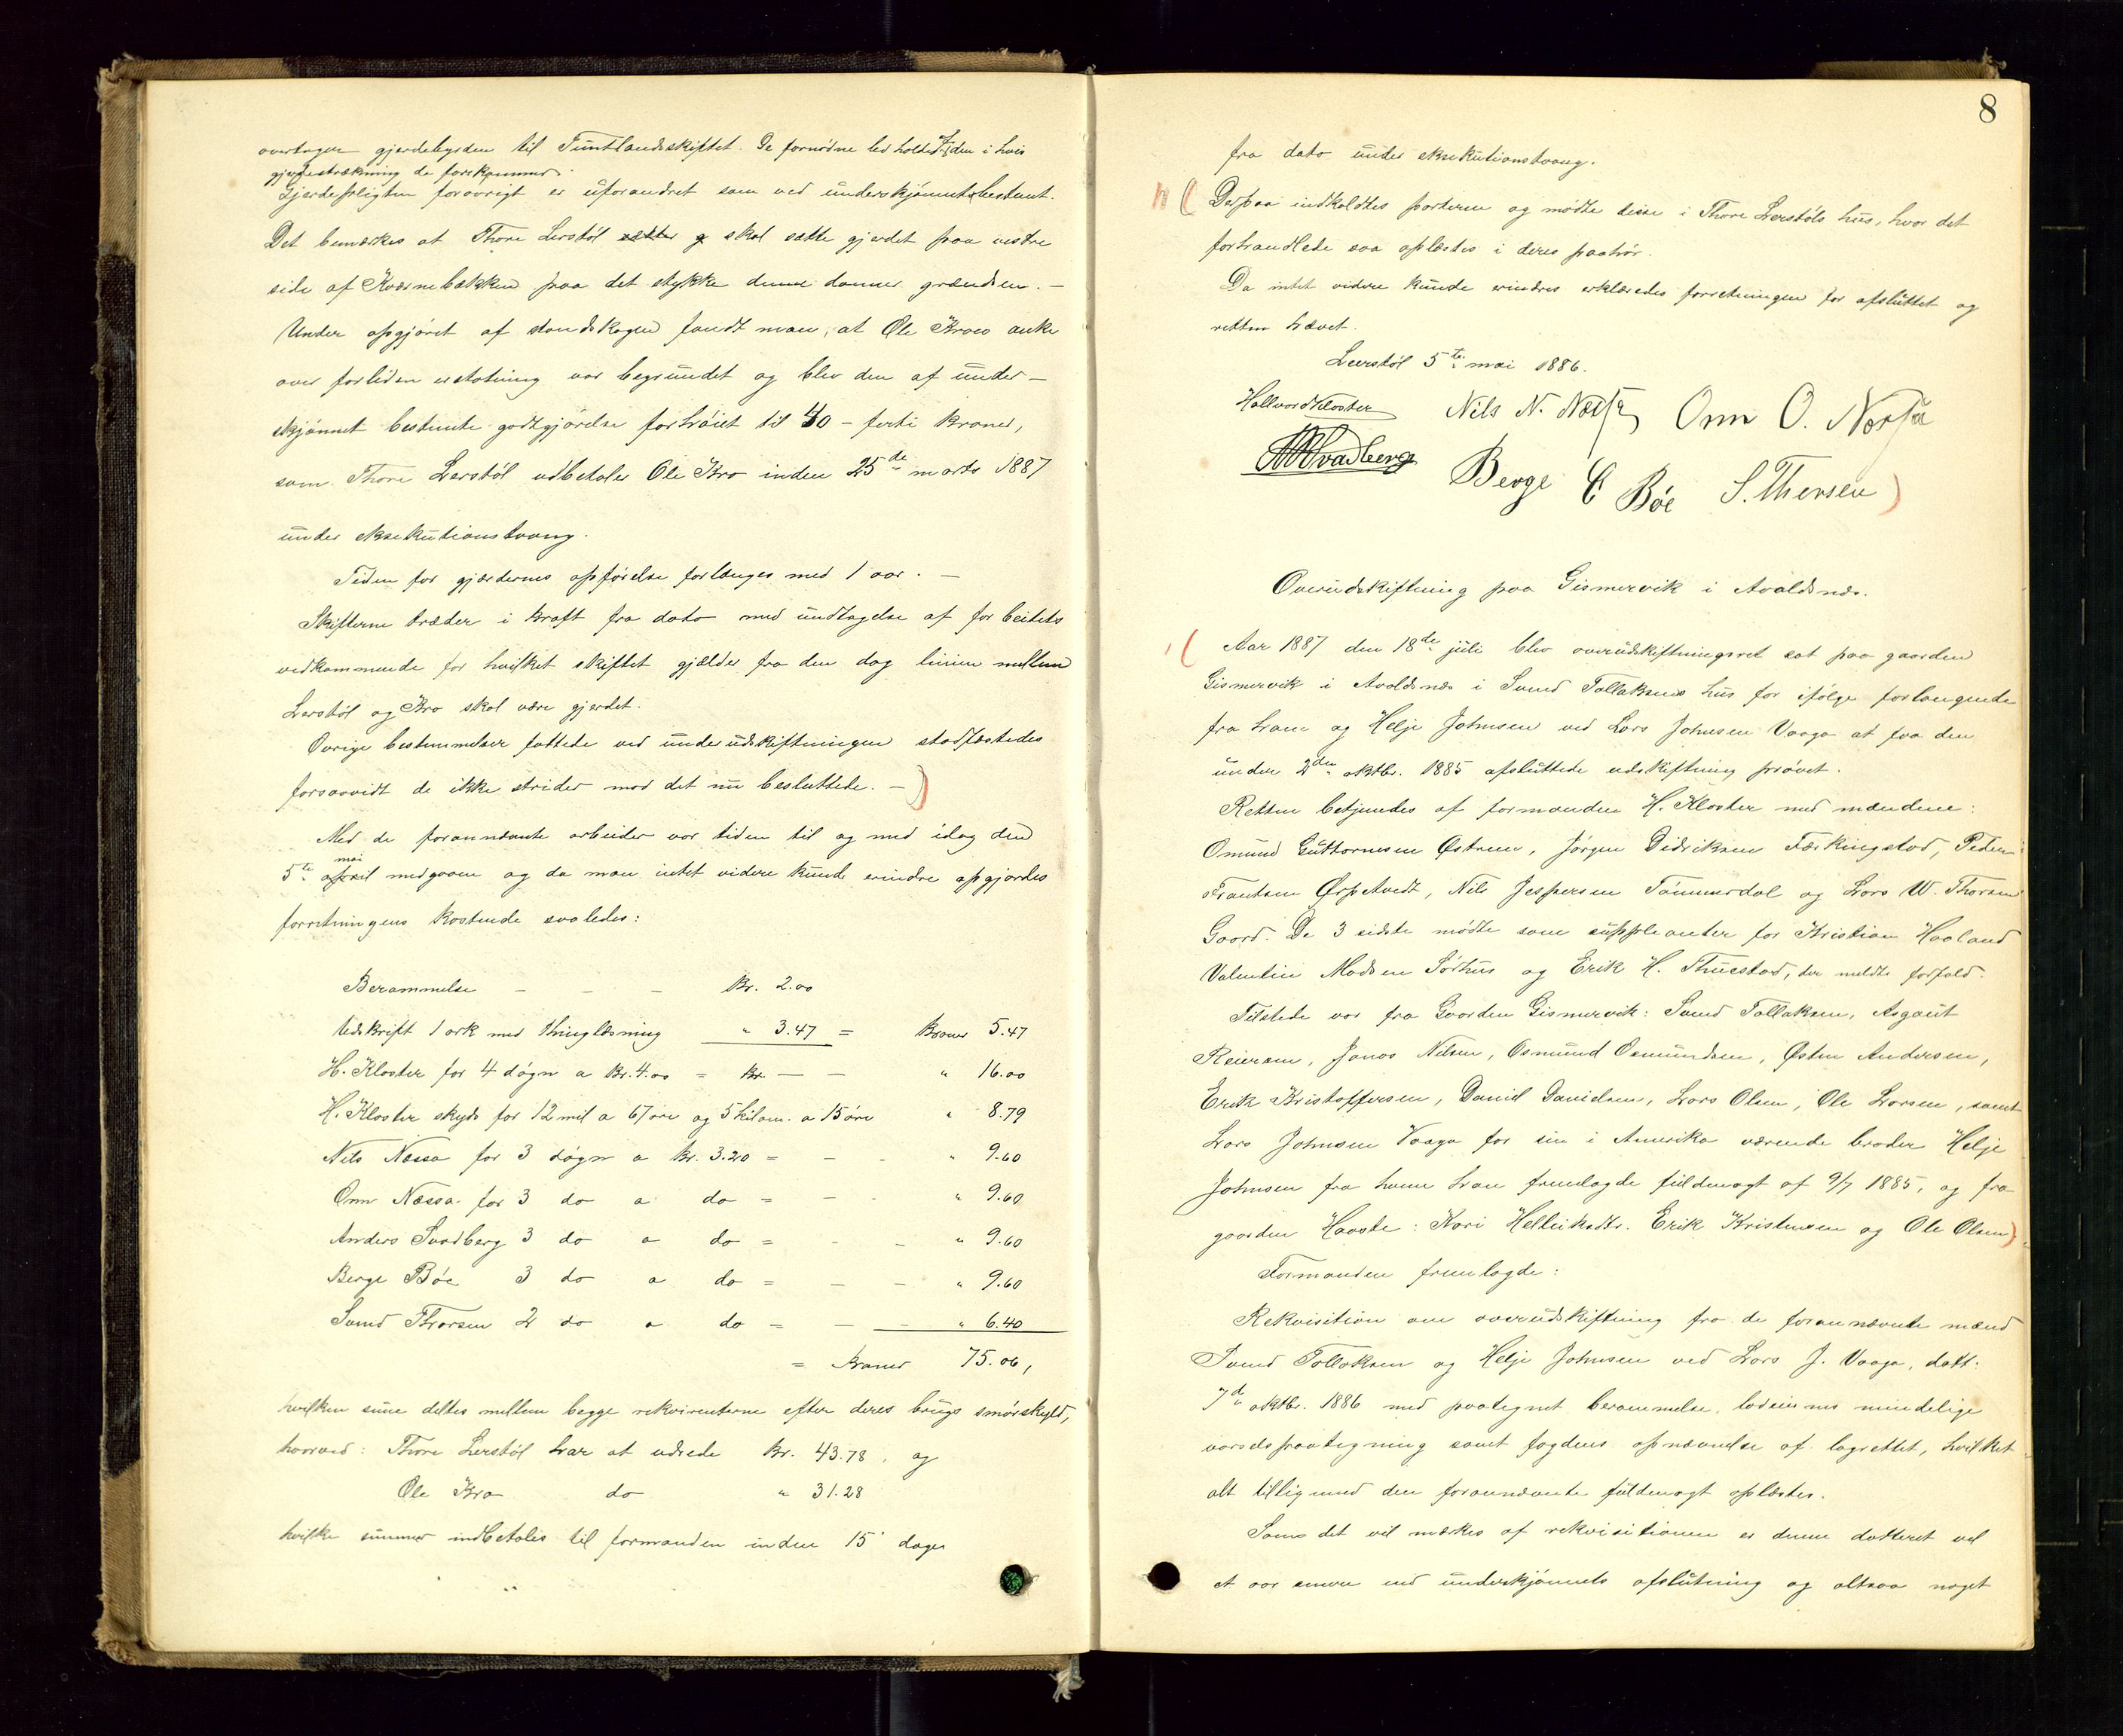 overtager gjerdebyrden til Tuntlandsskiftet. De fornødne led holdes af den i hvis
gjerdestrækning de forekommer.
Gjerdepligten forøvrigt er uforandret som ved underskjønnet bestemt.
Det bemærkes at Thore Lerstøl skal sætte gjerdet paa vestre
side af Kvernebækken paa det stykke denne danner grændsen. –
Under opgjøret af standskogen fandt man, at Ole Kroes anke
over forliden erstatning var begrundet og blev den af under-
skjønnet bestemte godtgjørelse forhøiet til 40 – forti kroner,
som Thore Lerstøl udbetaler Ole Kro inden 25de marts 1887
under eksekutionstvang.
Tiden for gjærdernes opførelse forlænges med 1 aar. –
Skifterne træder i kraft fra dato med undtagelse af for beitets
vedkommende for hvilket skiftet gjælder fra den dag linien mellem
Lerstøl og Kro skal være gjerdet.
Øvrige bestemmelser fattede ved underudskiftningen stadfæstedes
forsaavidt de ikke strider mod det nu besluttede. –)
Med de forannævnte arbeider var tiden til og med idag den
5te april mai medgaaen og da man intet videre kunde erindre opgjordes
forretningens kostende saaledes:
Berammelse – – – Kr. 2.00
Udskrift 1 ark med thinglæsning " 3.47 = Kroner 5.47
H. Kloster for 4 døgn a Kr. 4.00 = Kr. – – " 16.00
H. Kloster skyds for 12 mil a 67 øre og 5 kilom. a 15 øre " 8.79
Nils Næssa for 3 døgn a Kr. 3.20 = – - " 9.60
Omn Næssa for 3 do a do = – - " 9.60
Anders Svadberg 3 do a do = - – " 9.60
Berge Bøe 3 do a do = – – " 9.60
Svend Thorsen 2 do a do = – – " 6.40
= Kroner 75.06,
hvilken sum deltes mellem begge rekvirenterne efter deres brugs smørskyld,
hvorved: Thore Lerstøl har at udrede Kr. 43.78, og
Ole Kro do " 31.28
hvilke summer indbetales til formanden inden 15 dager
8
fra dato under eksekutionstvang.
( Derpaa indkaldtes parterne og mødte disse i Thore Lerstøls hus, hvor det
forhandlede saa oplæstes i deres paahør.
Da intet videre kunde erindres erklæredes forretningen for afsluttet og
retten hævet.
Leerstøl 5te mai 1886.
Hallvard Kloster Nils N. Næssa Omn O. Nessa
A. Svadberg Berge E Bøe S. Thorsen )
Overudskiftning paa Gismervik i Avaldsnæs.
( Aar 1887 den 18de juli blev overudskiftningsret sat paa gaarden
Gismervik i Avaldsnæs i Svend Tollaksens hus for ifølge forlangende
fra ham og Helje Johnsen ved Lars Johnsen Vaaga at faa den
under 2den oktbr. 1885 afsluttede udskiftning prøvet.
Retten betjendes af formanden H. Kloster med mændene:
Omund Guttormsen Østrem, Jørgen Didriksen Færkingstad, Peder
Frantsen Ørpetvedt, Nils Jespersen Tømmerdal og Lars W. Thorsen
Gaard. De 3 sidste mødte som suppleanter for Kristian Haaland
Valentin Madsen Sørhus og Erik H. Thuestad, der meldte forfald.
Tilstede var fra Gaarden Gismervik: Svend Tollaksen, Asgaut
Reiersen, Jonas Nilsen, Osmund Osmundsen, Østen Andersen,
Erik Kristoffersen, Daniel Danielsen, Lars Olsen, Ole Larsen, samt
Lars Johnsen Vaaga for sin i Amerika værende broder Helje
Johnsen fra hvem han fremlagde fuldmagt af 9/7 1885, og fra
gaarden Haavte: Kari Helleiksdtr. Erik Kristensen og Ole Olsen)
Formanden fremlagde:
Rekvisition om overudskiftning fra de forannævnte mænd
Svend Tollaksen og Helje Johnsen ved Lars J. Vaaga, datt:
7d oktbr. 1886 med paategnet berammelse, lodeiernes mindelige
varselspaategning samt fogdens opnævnelse af lagrettet, hvilket
alt tilligemed den forannævnte fuldmagt oplæstes.
Som det vil mærkes af rekvisitionen er denne datteret vel
et aar senere end underskjønnets afslutning og altsaa noget